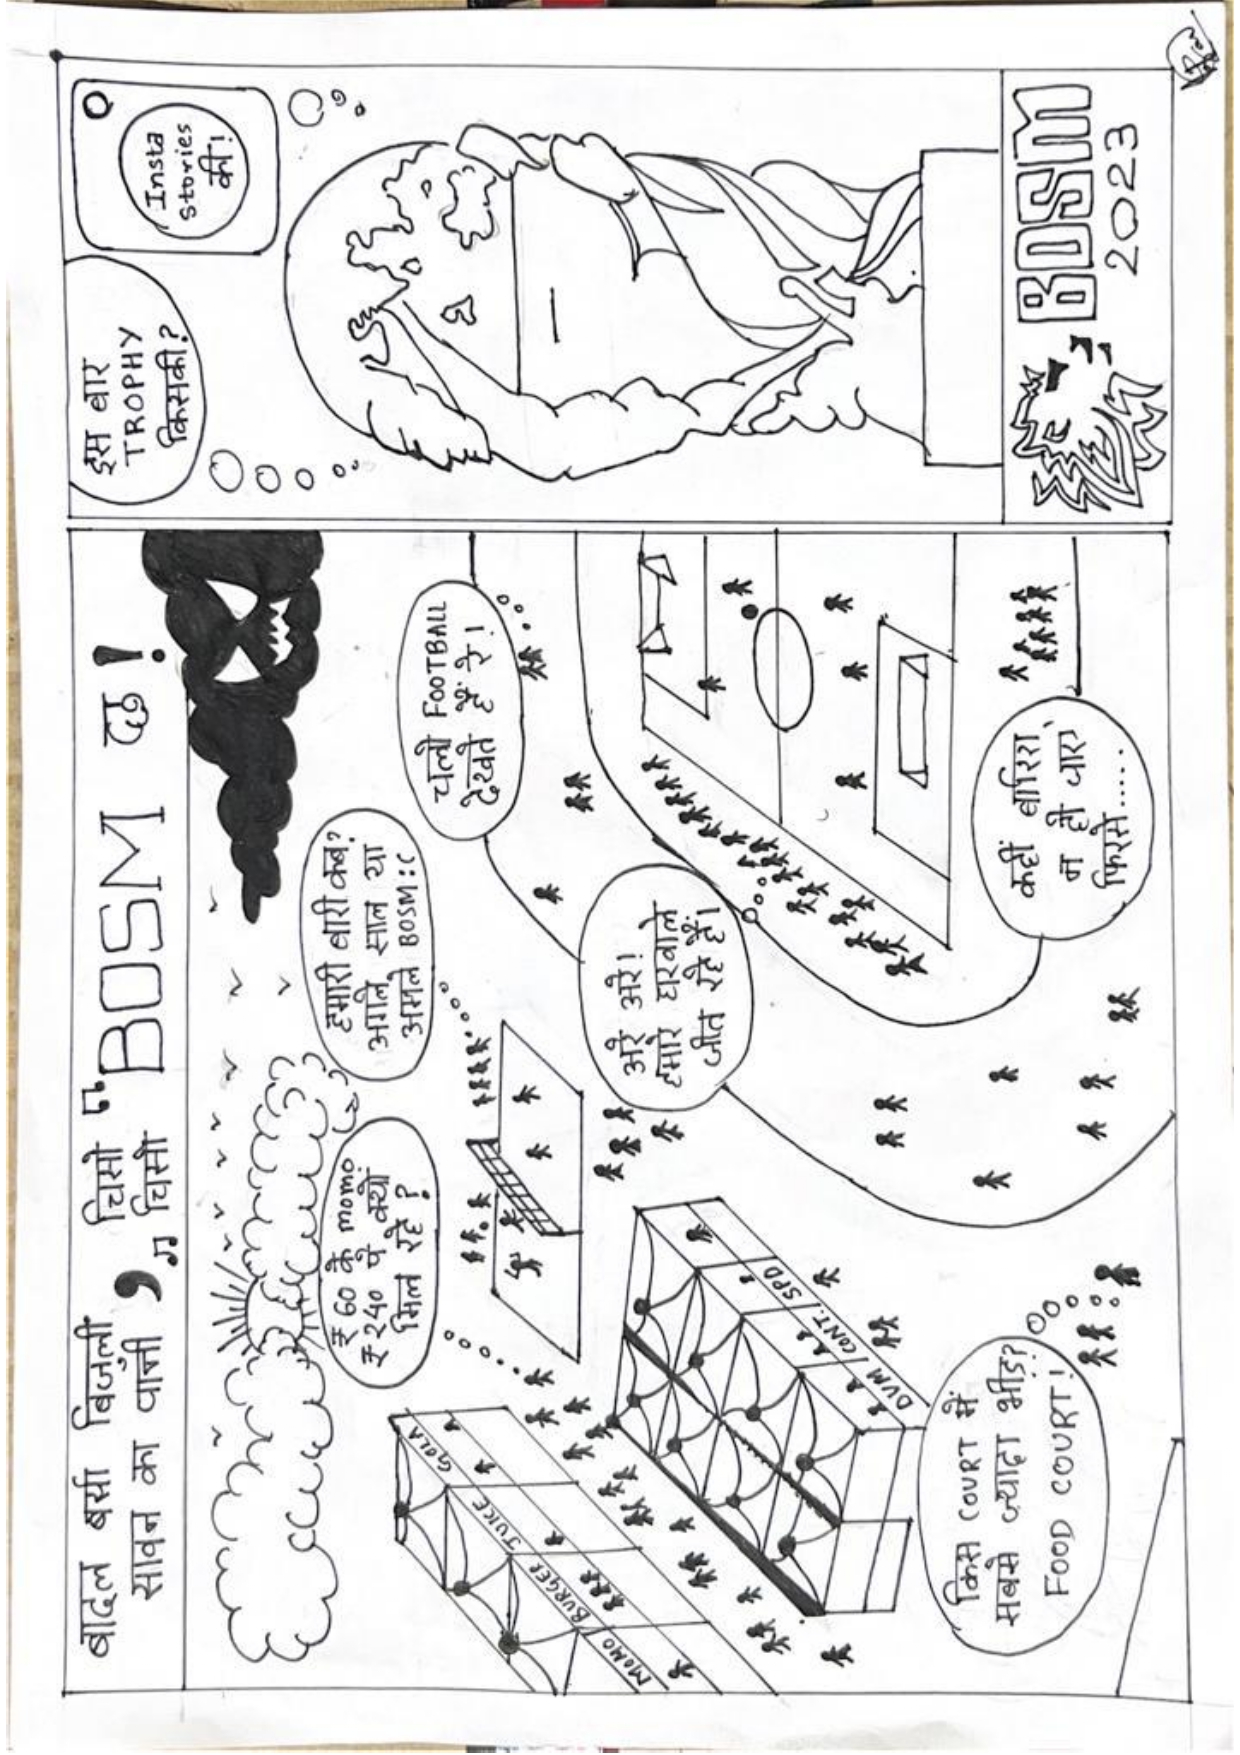 बादल बर्सा बिजुली
सावन का पानी
,
♫
चिसो
चिसो
"BOSM छ!
₹60 के momo
₹240 पे क्यों
मिल रहे?
हमारी बारी कब?
अगले साल या
अगले BOSM :(
चलो FOOTBALL
देखते हैं रे!
अरे अरे!
हमारे घरवाले
जीत रहे हैं।
कहीं बारिश
न हो जाए
फिरसे.....
किस COURT में
सबसे ज़्यादा भीड़?
FOOD COURT!
GOLA
JUICE
BURGER
MOMO
DVM / CONT. / SPD
इस बार
TROPHY
किसकी?
Insta
stories
की!
BOSM
2023